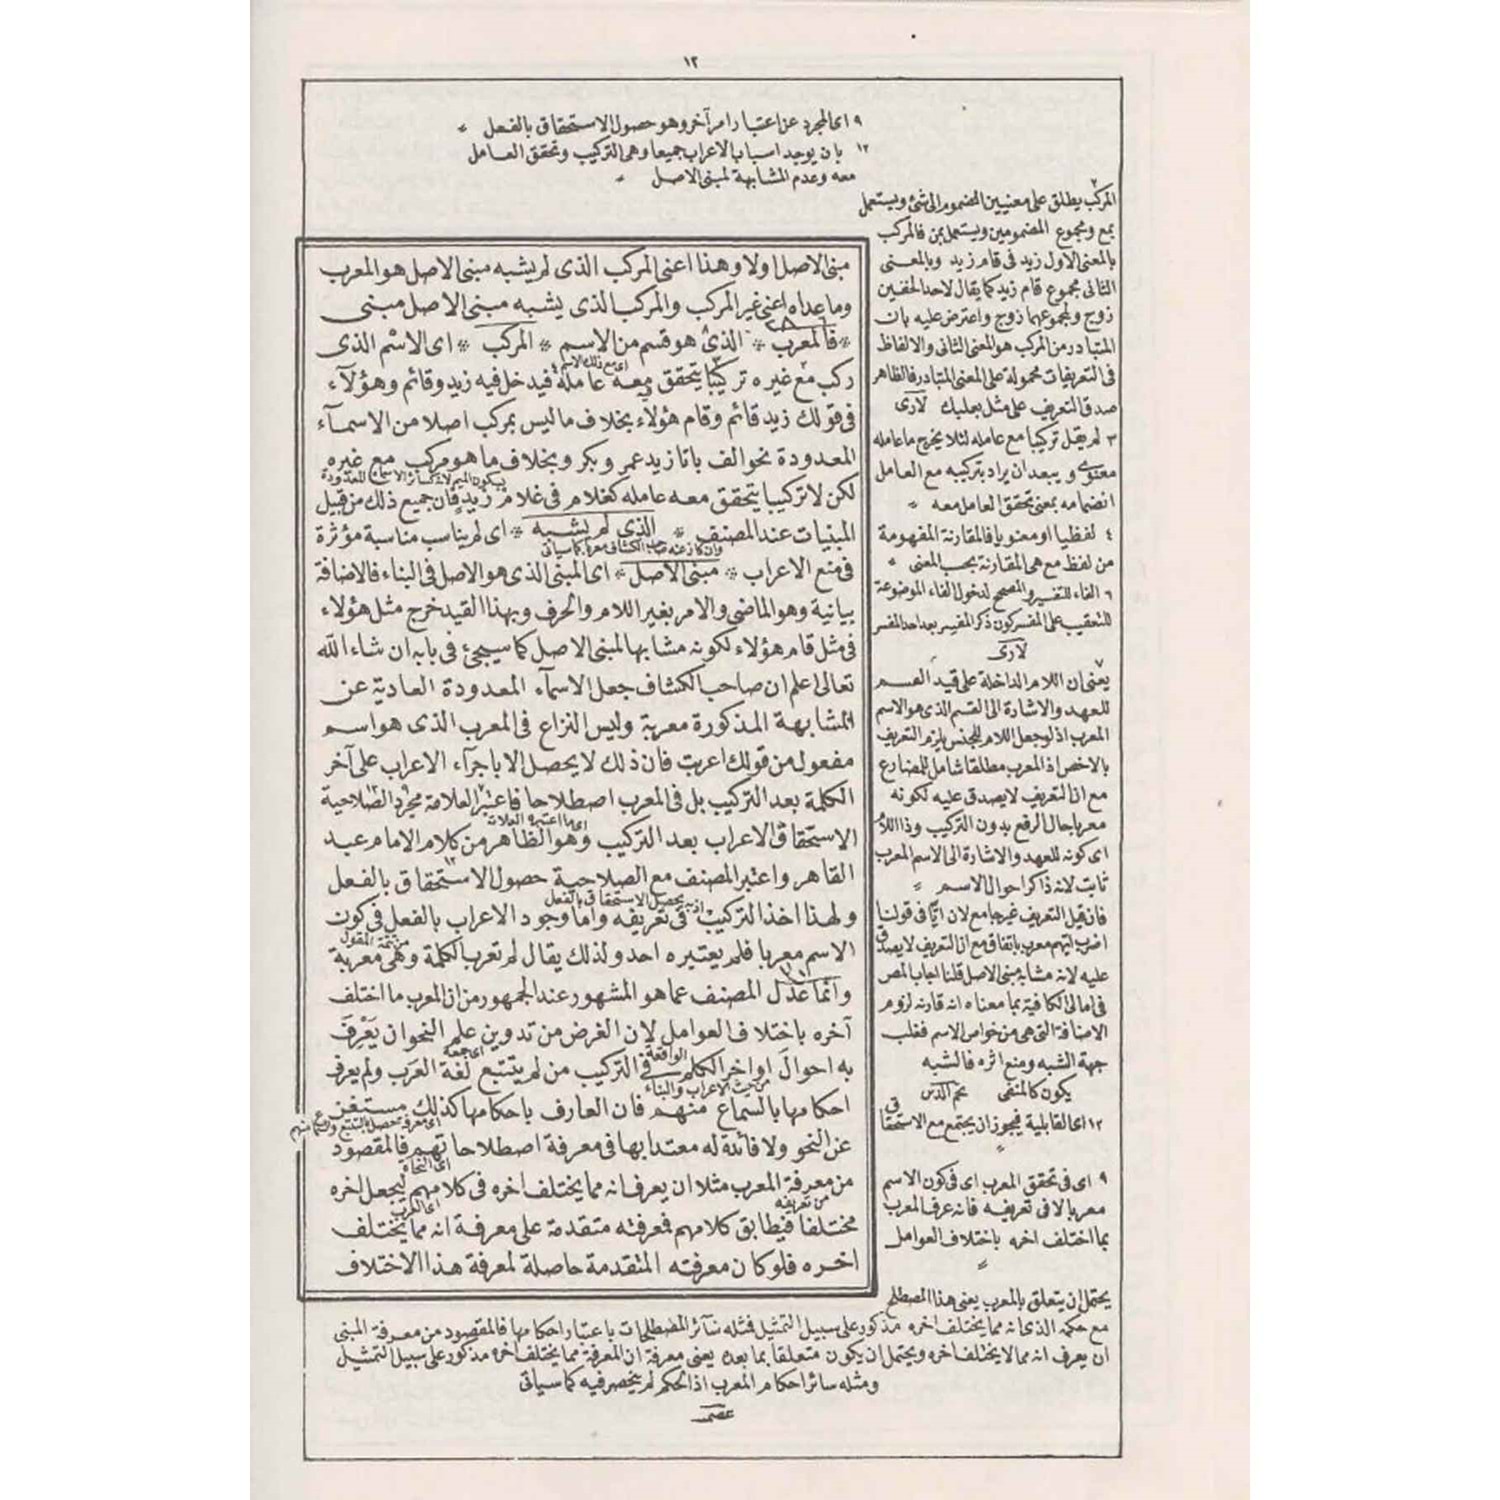 ١٢
٩ اى المجرد عن اعتبار امر آخر وهو حصول الاستحقاق بالفعل
١٢ بان يوجد اسباب الاعراب جميعا وهى التركيب وتحقق العامل
معه وعدم المشابهة لمبنى الاصل
مبنى الاصل اولا وهذا اعنى المركب الذى لم يشبه مبنى الاصل هو المعرب
وما عداه اعنى غير المركب والمركب الذى يشبه مبنى الاصل مبنى
* فالمعرب * الذى هو قسم من الاسم * المركب * اى الاسم الذى
اى مع ذلك الاسم
ركب مع غيره تركيبا يتحقق معه عامله فيدخل فيه زيد وقائم وهؤلآء
فى قولك زيد قائم وقام هؤلاء بخلاف ما ليس بمركب اصلا من الاسمآء
المعدودة نحو الف با تا زيد عمرو بكر وبخلاف ما هو مركب مع غيره
بسكون الميم لانه كسائر الاسماء المعدودة
لكن لا تركيبا يتحقق معه عامله كغلام فى غلام زيد فان جميع ذلك من قبيل
المبنيات عند المصنف * الذى لم يشبه * اى لم يناسب مناسبة مؤثرة
وان كان عند صاحب الكشاف معربا كما سياتى
فى منع الاعراب * مبنى الاصل * اى المبنى الذى هو الاصل فى البناء فالاضافة
بيانية وهو الماضى والامر بغير اللام والحرف وبهذا القيد خرج مثل هؤلاء
فى مثل قام هؤلاء لكونه مشابها لمبنى الاصل كما سيجئ فى بابه ان شاء الله
تعالى اعلم ان صاحب الكشاف جعل الاسمآء المعدودة العادية عن
المشابهة المذكورة معربة وليس النزاع فى المعرب الذى هو اسم
مفعول من قولك اعربت فان ذلك لا يحصل الا باجرآء الاعراب على آخر
الكلمة بعد التركيب بل فى المعرب اصطلاحا فاعتبر العلامة مجرد الصلاحية
اى ما اعتبره العلامة
الاستحقاق الاعراب بعد التركيب وهو الظاهر من كلام الامام عبد
القاهر واعتبر المصنف مع الصلاحية حصول الاستحقاق بالفعل
اذ به يحصل الاستحقاق بالفعل
ولهذا اخذ التركيب فى تعريفه واما وجود الاعراب بالفعل فى كون
من تتمة المقول
الاسم معربا فلم يعتبره احد ولذلك يقال لم تعرب الكلمة وهى معربة
وانما عدل المصنف عما هو المشهور عند الجمهور من ان المعرب ما اختلف
آخره باختلاف العوامل لان الغرض من تدوين علم النحو ان يَعْرِفَ
الواقعة اى جمعه
به احوال اواخر الكلم فى التركيب من لم يتتبع لغة العرب ولم يعرف
من حيث الاعراب والبناء
احكامها بالسماع منهم فان العارف باحكامها كذلك مستغن
عن النحو ولا فائدة له معتدا بها فى معرفة اصطلاحاتهم فالمقصود
اى النحاة
من معرفة المعرب مثلا ان يعرف انه مما يختلف اخره فى كلامهم ليجعل اخره
من تعريفه اى العرب
مختلفا فيطابق كلامهم فمعرفته متقدمة على معرفة انه مما يختلف
اخره فلو كان معرفته المتقدمة حاصلة لمعرفة هذا الاختلاف
٢ المركب يطلق على معنيين المضموم الى شئ ويستعمل
بمع ومجموع المضمومين ويستعمل بمن فالمركب
بالمعنى الاول زيد فى قام زيد وبالمعنى
الثانى مجموع قام زيد كما يقال لاحد الخفين
زوج ولمجموعهما زوج واعترض عليه بان
المتبادر من المركب هو المعنى الثانى والالفاظ
فى التعريفات محمولة على المعنى المتبادر فالظاهر
صدق التعريف على مثل بعلبك لارى
٣ لم يقل تركيبا مع عامله لئلا يخرج ما عامله
معنوى ويبعد ان يراد بتركيبه مع العامل
انضمامه بمعنى تحقق العامل معه
٤ لفظيا او معنويا فالمقارنة المفهومة
من لفظ مع هى المقارنة بحسب المعنى
٦ الفاء للتفسير والمصحح لدخول الفاء الموضوعة
للتعقيب على المفسر كون ذكر المفسر بعد احد المفسر
لارى
٧ يعنى ان اللام الداخلة على قيد القسم
للعهد والاشارة الى القسم الذى هو الاسم
المعرب اذ لو جعل اللام للجنس يلزم التعريف
بالاخص اذ المعرب مطلقا شامل للمضارع
مع ان التعريف لا يصدق عليه لكونه
معربا بحال الرفع بدون التركيب وذا اللام
اى كونه للعهد والاشارة الى الاسم المعرب
ثابت لانه ذاكر احوال الاسم
فان قيل التعريف غير جامع لان ايًّا فى قولنا
اضرب ايهم معرب باتفاق مع ان التعريف لا يصدق
عليه لانه مشابه مبنى الاصل قلنا اجاب المص
فى امالى الكافية بما معناه انه قارنه لزوم
الاضافة التى هى من خواص الاسم فغلب
جهة الشبه ومنع اثره فالشبه
يكون كالمنفى
١٢ اى القابلية فيجوز ان يجتمع مع الاستحقاق
٩ اى فى تحقق المعرب اى فى كون الاسم
معربا لا فى تعريفه فانه عرف المعرب
بما اختلف اخره باختلاف العوامل
يحتمل ان يتعلق بالمعرب يعنى هذا المصطلح
مع حكمه الذى انه مما يختلف اخره مذكور على سبيل التمثيل فمثله سآئر المصطلحات باعتبار احكامها فالمقصود من معرفة المبنى
ان يعرف انه مما لا يختلف اخره ويحتمل ان يكون متعلقا بما بعده يعنى معرفة ان المعرفة مما يختلف اخره مذكور على سبيل التمثيل
ومثله سائر احكام المعرب اذ الحكم لم ينحصر فيه كما سياتى